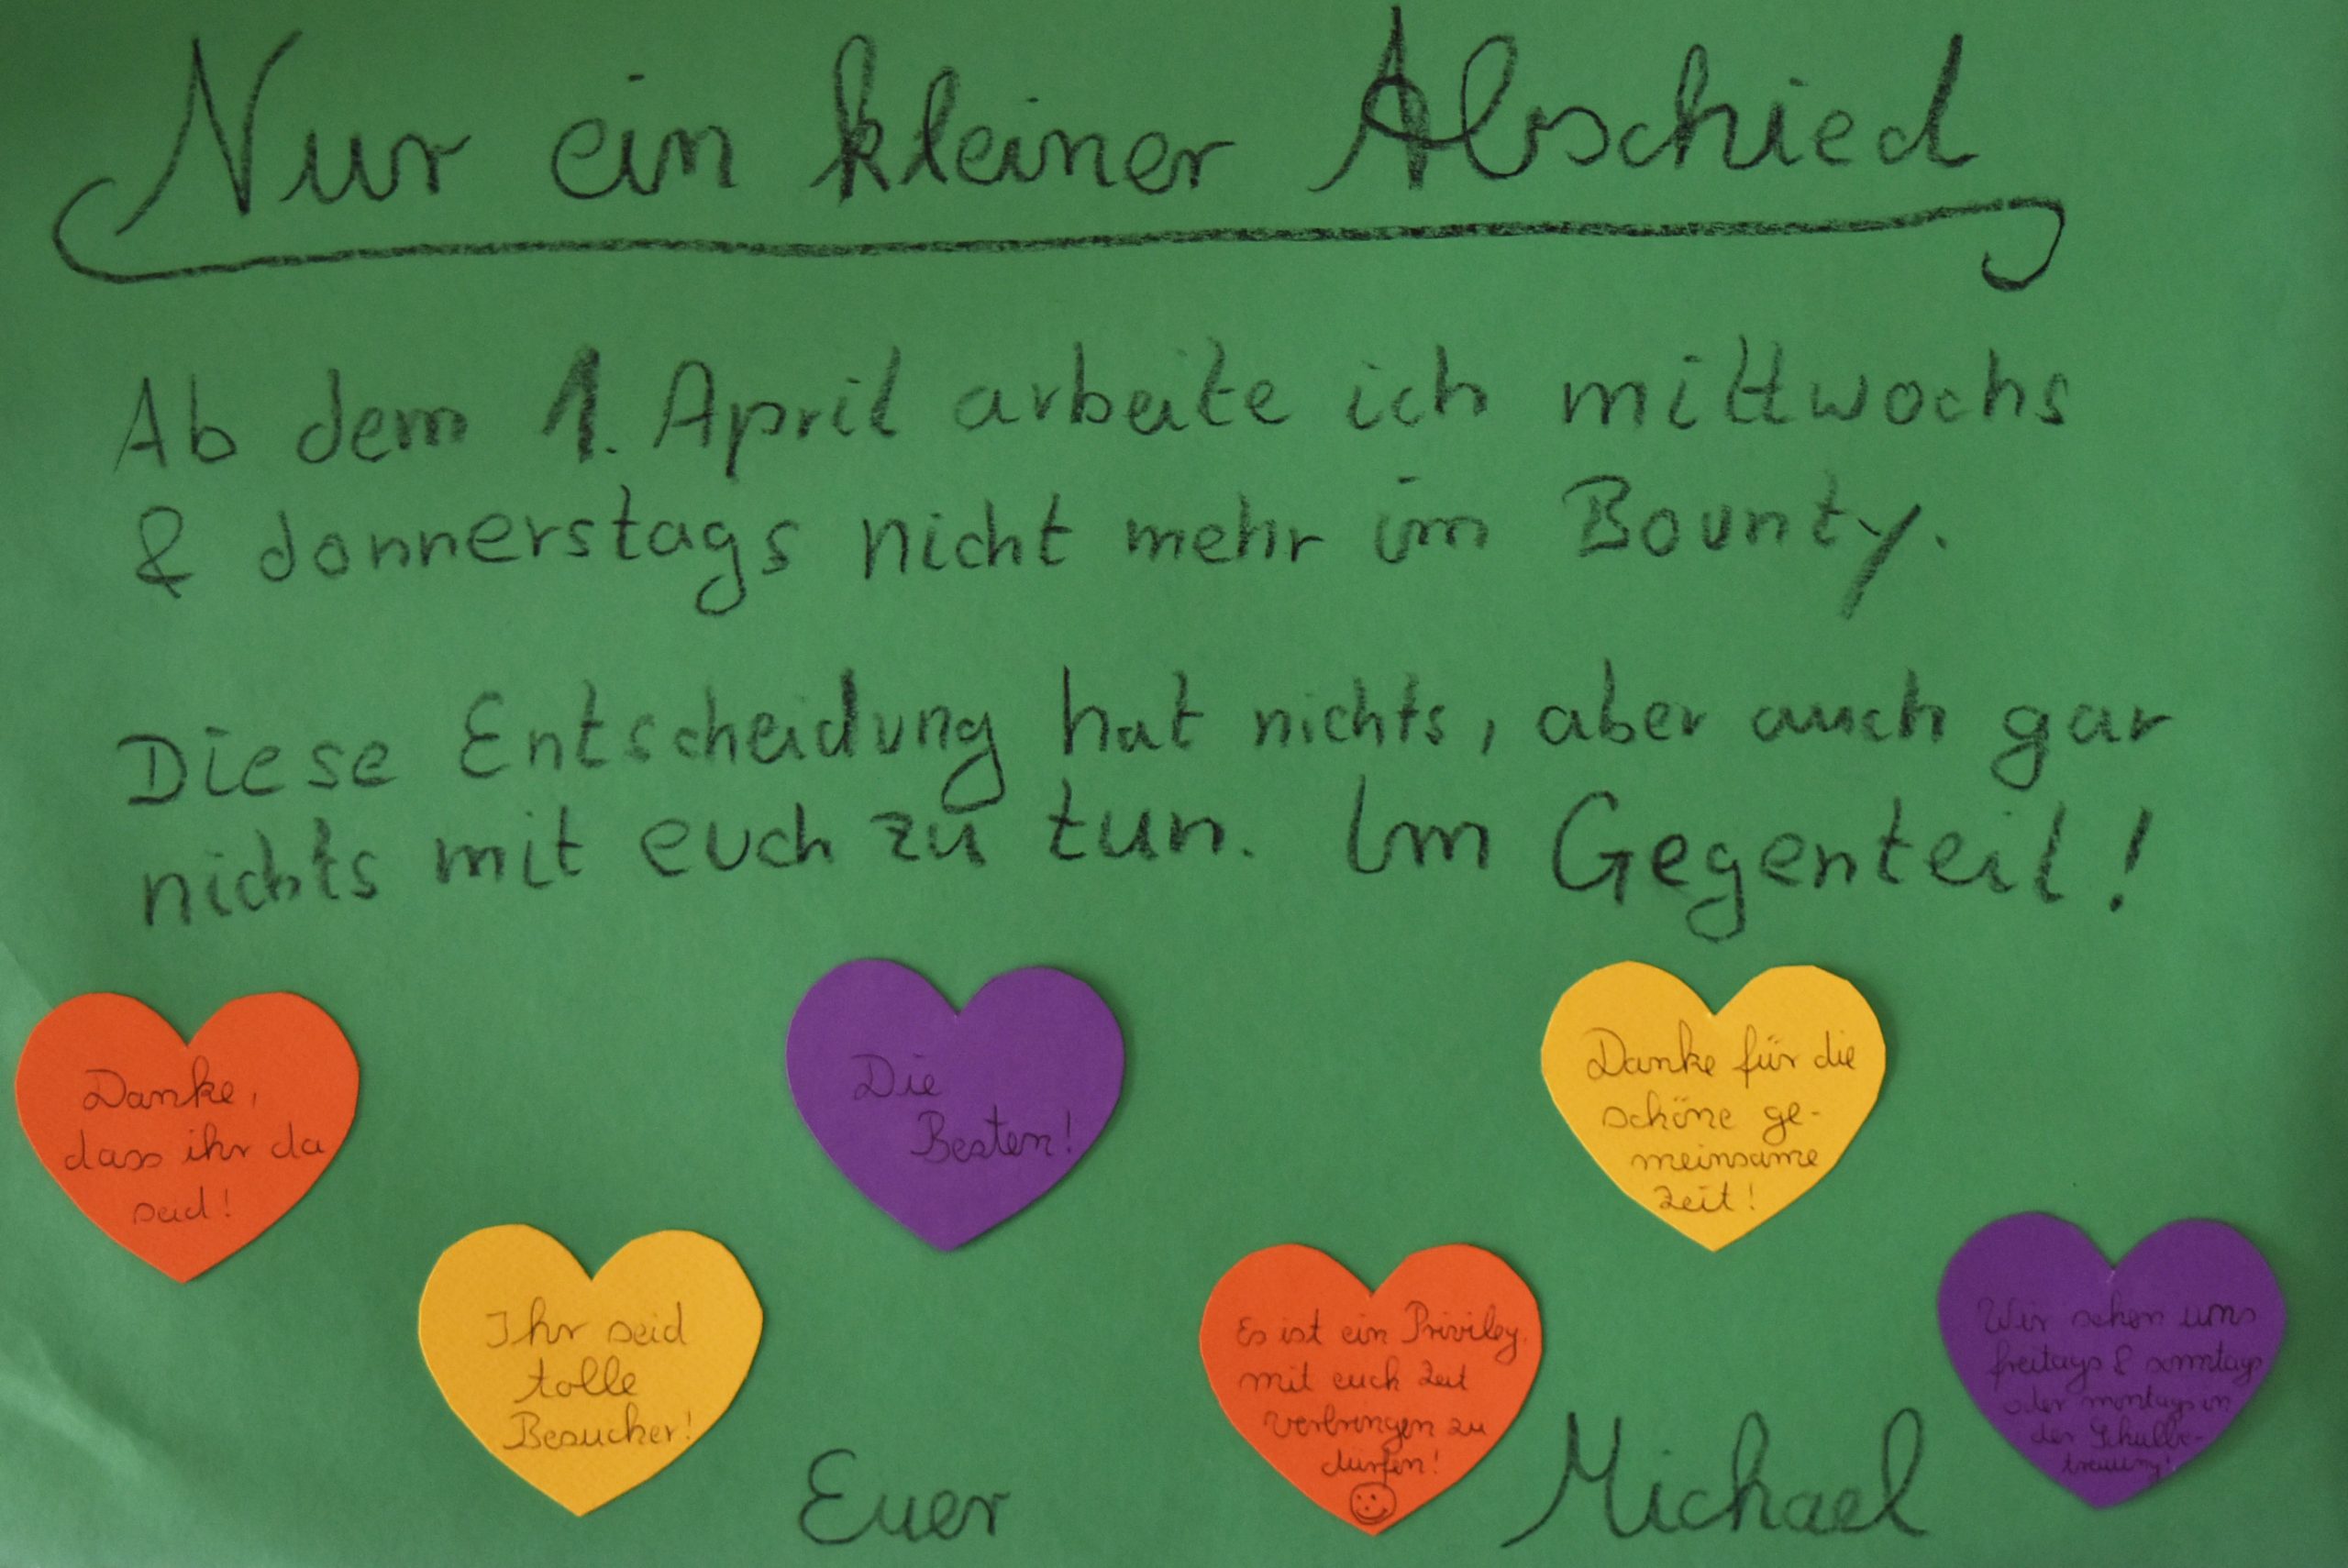 Nur ein kleiner Abschied
Ab dem 1. April arbeite ich mittwochs
& donnerstags nicht mehr im Bounty.
Diese Entscheidung hat nichts, aber auch gar
nichts mit euch zu tun. Im Gegenteil!
Danke,
dass ihr da
seid!
Ihr seid
tolle
Besucher!
Die
Besten!
Es ist ein Privileg,
mit euch Zeit
verbringen zu
dürfen!
Danke für die
schöne ge-
meinsame
Zeit!
Wir sehen uns
freitags & sonntags
oder montags in
der Schulbe-
treuung!
Euer Michael